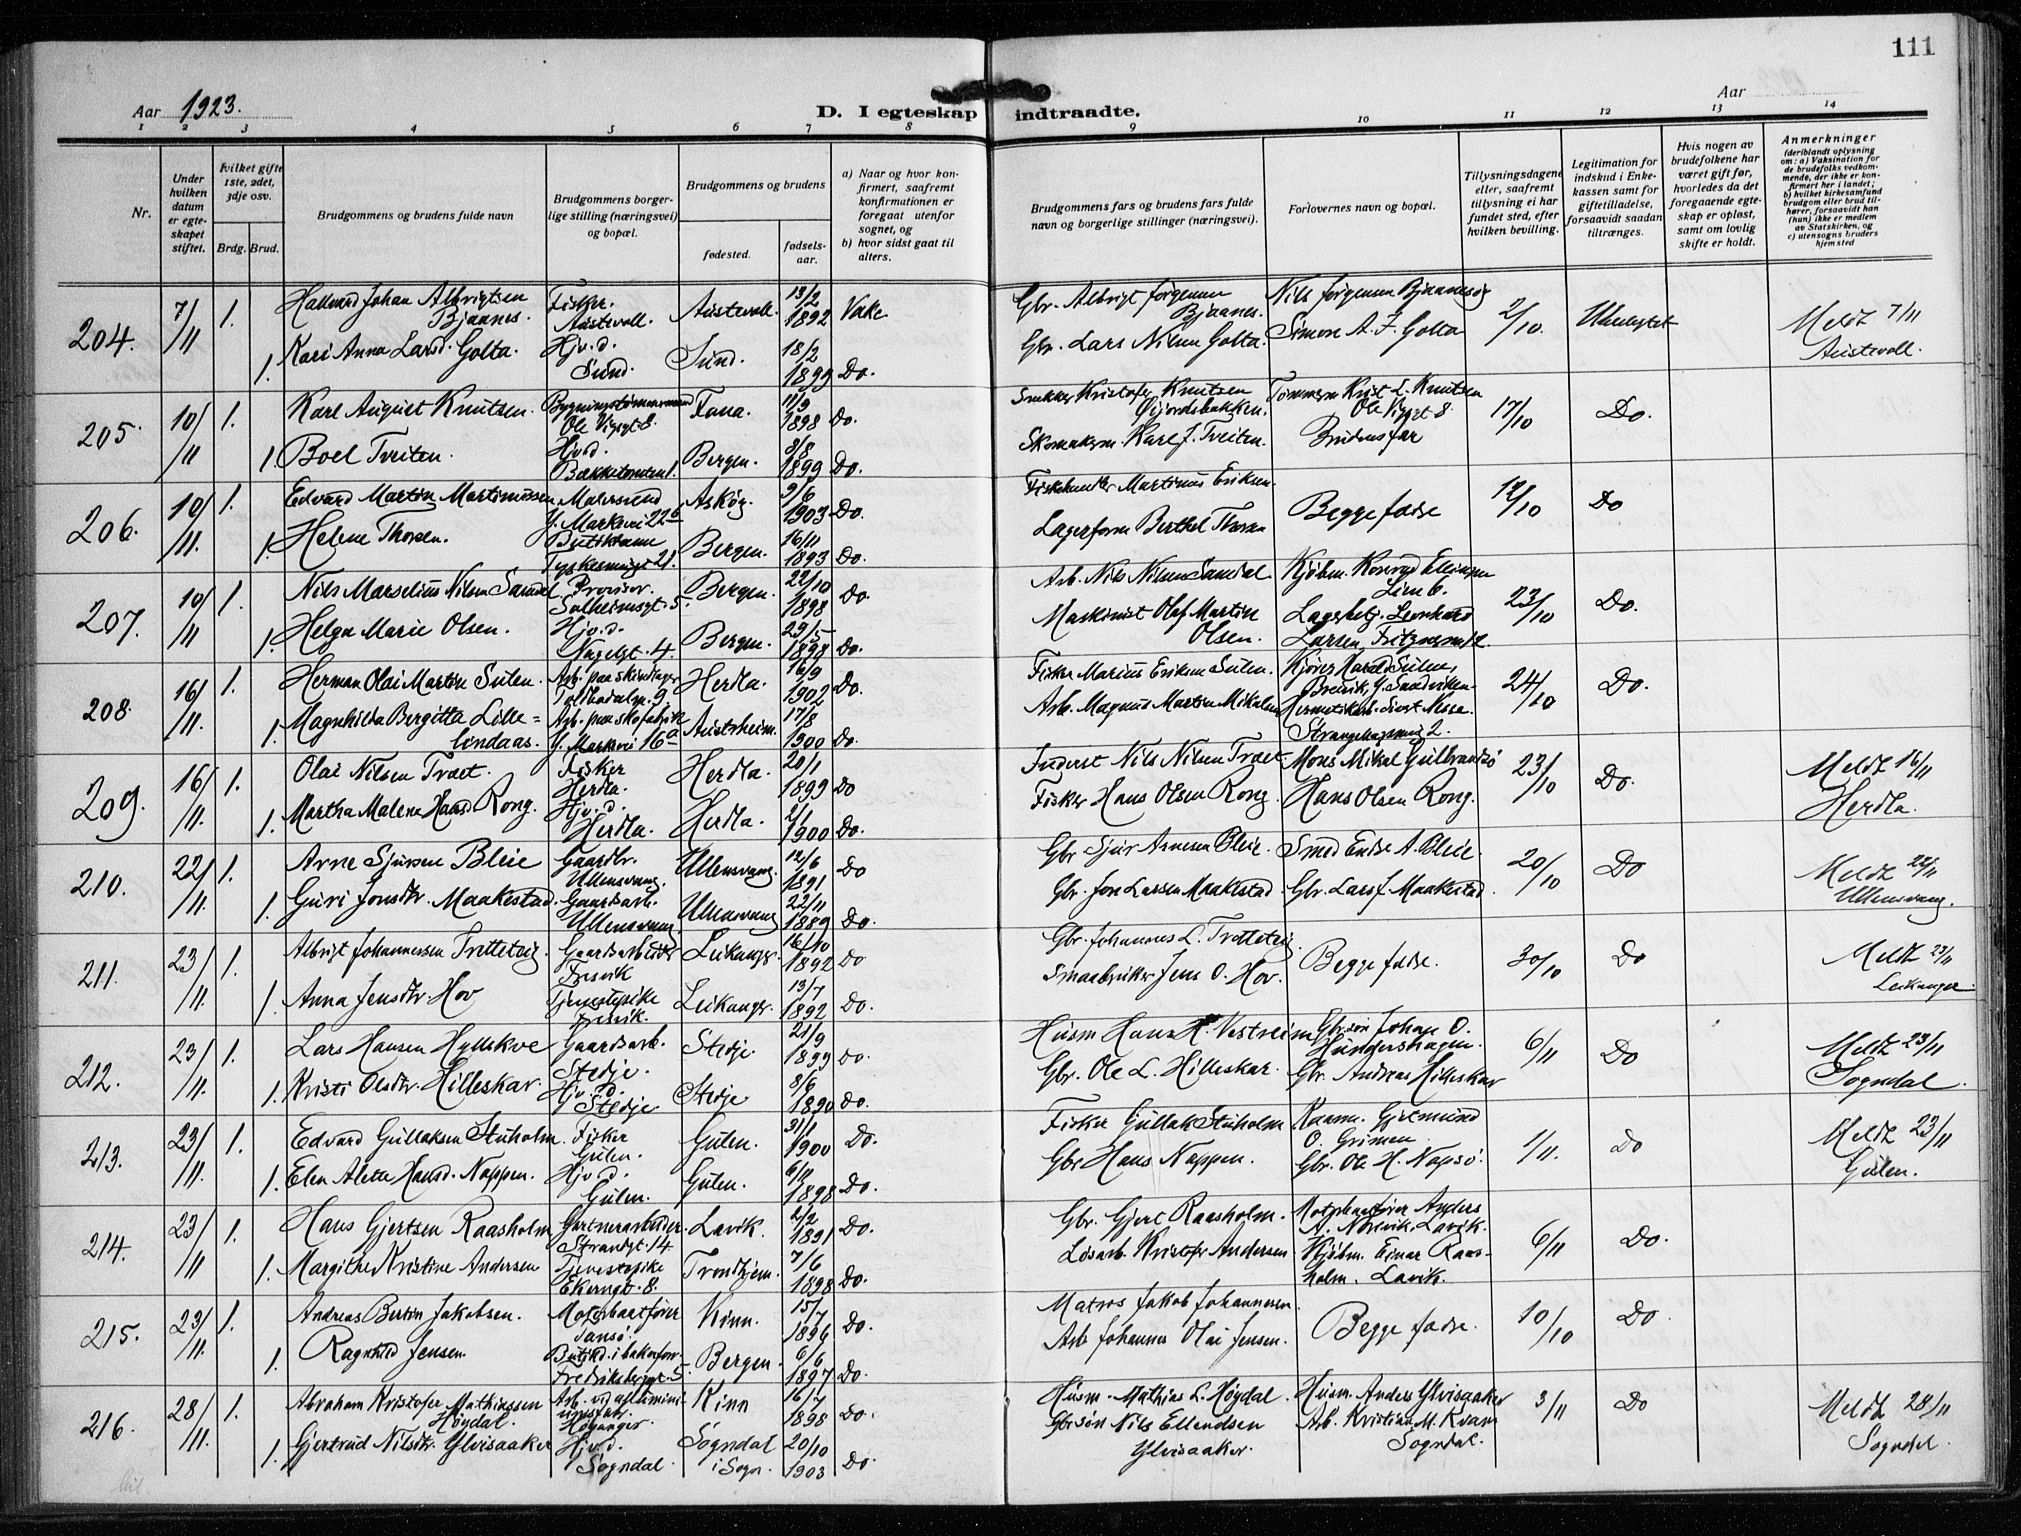 111
Aar 1923.
D. I egteskap indtraadte.
Aar
1 2 3 4 5 6 7 8 9 10 11 12 13 14
Nr.
Under hvilken datum er egteskapet stiftet.
Hvilket gifte 1ste, 2det, 3dje osv.
Brdg. Brud.
Brudgommens og brudens fulde navn
Brudgommens borgerlige stilling (næringsvei) og bopæl.
Brudgommens og brudens
fødested.
fødselsaar.
a) Naar og hvor konfirmert, saafremt konfirmationen er foregaat utenfor sognet, og
b) hvor sidst gaat til alters.
Brudgommens fars og brudens fars fulde navn og borgerlige stillinger (næringsvei).
Forlovernes navn og bopæl.
Tillysningsdagene eller, saafremt tillysning ei har fundet sted, efter hvilken bevilling.
Legitimation for indskud i Enkekassen samt for giftetilladelse, forsaavidt saadan tiltrænges.
Hvis nogen av brudefolkene har været gift før, hvorledes da det foregaaende egteskap er opløst, samt om lovlig skifte er holdt.
Anmerkninger
(deriblandt oplysning om: a) Vaksination for de brudefolks vedkommende, der ikke er konfirmert her i landet;
b) hvilket kirkesamfund brudgom eller brud tilhører, forsaavidt han (hun) ikke er medlem av Statskirken, og
c) utensogns bruders hjemsted
204. 7/11 1. Hallvard Johan Albrigtsen Bjaanes. Fisker. Austevoll. Austevoll. 13/2 1892 Gbr. Albrigt Jørgensen Bjaanes. Nils Jørgensen 2/10. Meldt 7/11 Austevoll.
1. Kari Anna Larsd. Golta. Hjv.d. Sund. Sund. 18/2 1899 Do. Gbr. Lars Nilsen Golta. Simon A. J. Golta
205. 10/11 1. Karl August Knutsen. Ole Vigsgt 8. Fana. 11/9 1898 Do. Snekker Kristofer Knutsen Krist. L. Knutsen Ole Vigsgt 8. 17/10 Do.
1. Boel Tveiten. Hjv.d. Bergen. 8/8 1899 Do. Skomakerm. Karl J. Tveiten. Brudens far
206. 10/11. 1. Edvard Martin Martinussen Y. Markevei 22 Askøy. 9/6 1903 Do. Martinus Eriksen. Begge fædre 10 Do
1. Helene Thorsen. Bergen. 16/11 1893 Do. Lagerform Berthel Thorsen
207. 10/11 1. Nils Marselius Nilsen Samdal Provisor. Solheimsgt. 5. Bergen. 22/10 1898 Do. Arb. Nils Nilsen Samdal. Kjøbm. Konrad Ellingsen 23/10 Do.
1. Helga Marie Olsen. Hjv.d. Nagelgt. 4. Bergen. 29/5 1898 Do. Maskinist Olaf Martin Olsen. Leonhard Larsen
208. 16/11. 1. Herman Olai Martin Sulen. Toldbodalm. 9 Herdla. 16/9 1902 Do. Fisker Marius Eriksen Sulen. Harald Sulen, Breivik, Y. Sandviken. 24/10 Do.
1. Magnhilda Bergitta Lillelindaas. Arb. paa skofabrik Y. Markevei 16a Austrheim. 17/8 1900 Do. Arb. Magnus Martin Mikalsen 2.
209. 16/11. 1. Olai Nilsen Træt. Fisker Herdla. Herdla. 20/1 1899 Do Inderst Nils Nilsen Træt. Mons Mikal Gulbrandsø 23/10 Do. Meldt 16/11 Herdla.
1. Martha Malena Hansd Rong. Hjv.d. Herdla. Herdla. 2/1 1900 Do. Fisker Hans Olsen Rong. Hans Olsen Rong.
210. 22/11. 1. Arne Sjursen Bleie Gaardbr. Ullensvang. Ullensvang 12/6 1891 Do Gbr Sjur Arnesen Bleie. Smed Endre A. Bleie. 20/10 Do Meldt 22/11 Ullensvang.
1. Guri Jonsdtr. Maakestad. Gaardsarb. Ullensvang. Ullensvang 22/11 1889 Do. Gbr. Jon Larsen Maakestad. Gbr. Lars J. Maakestad.
211. 23/11. 1. Albrigt Johannessen Tretteteig. Gaardsarbeider Fresvik Leikanger. 16/10 1892 Do Gbr. Johannes L. Tretteteig Begge fædre. 30/10 Do Meldt 23/11 Leikanger.
1. Anna Jensdtr. Hov Tjenestepike Fresvik. Leikanger. 13/7 1892 Do. Smaabruker Jens O. Hov.
212. 23/11. 1. Lars Hansen Gaardsarb. Stedje. Stedje. 21/9 1899 Do. Husm Hans H. Vestreim Gbr.søn Johan O. Hundershagen. 6/11 Do Meldt 23/11 Sogndal.
1. Kristi Olsdtr. Hilleskar. Hjv.d. Stedje Stedje 8/6 1890 Do. Gbr. Ole L. Hilleskar. Gbr. Andreas Hilleskar
213. 23/11. 1. Edvard Gullaksen Stuholm. Fisker Gulen. Gulen. 31/1 1900 Do. Fisker Gullak Stuholm Gjermund O. Grimen 1/11. Do Meldt 23/11 Gulen.
1. Elen Alette Hansd. Nappen. Hjv.d. Gulen. Gulen. 1898 Do. Gbr Hans Nappen. Gbr. Ole H. Napsø.
214. 23/11 1. Hans Gjertsen Raasholm Gartnerarbeider. Strandgt. 14 Lavik. 2/2 1891 Do. Gbr. Gjert Raasholm. Anders A. Nørevik, Lavik. 6/11 Do.
1. Margithe Kristine Andersen Tjenestepike 8. Trondhjem. 7/6 1898 Do. Løsarb. Kristofer Andersen Kjøbm. Einar Raasholm. Lavik.
215. 23/11. 1. Andreas Bertin Jakobsen. Motorbaatfører Kinn. 15/7 1896 Do. Matros Jakob Johannesen. Begge fædre. 10/10 Do
1. Ragnhild Jensen. 5. Bergen. 6/6 1897 Do. Arb Johannes Olai Jensen.
216. 28/11. 1. Abraham Kristofer Mathiassen Høydal. Høyanger. Kinn 16/7 1898 Do. Husm. Mathias L. Høydal Husm. Anders Ylvisaaker 3/11 Do Meldt 28/11 Sogndal.
1. Gjertrud Nilsdtr. Ylvisaaker Hjv.d. Sogndal. Sogndal i Sogn. 20/10 1903 Do. Gbr.søn Nils Ellendsen Ylvisaaker. Arb. Kristian M. Kvam Sogndal.